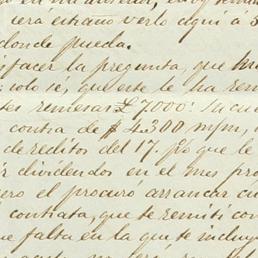 era estraño verlo aqui á
donde pueda.
sfacer la pregunta, que
solo sé, que este le ha rem
tes remesas £7000: Su cu
contra de $4.300 m/m,
de reditos del 17. Po que le
ir dividendos en el mes pro
ero el procuró arrancar cu
contrata, que te remití con
ue falta en la que te incluy